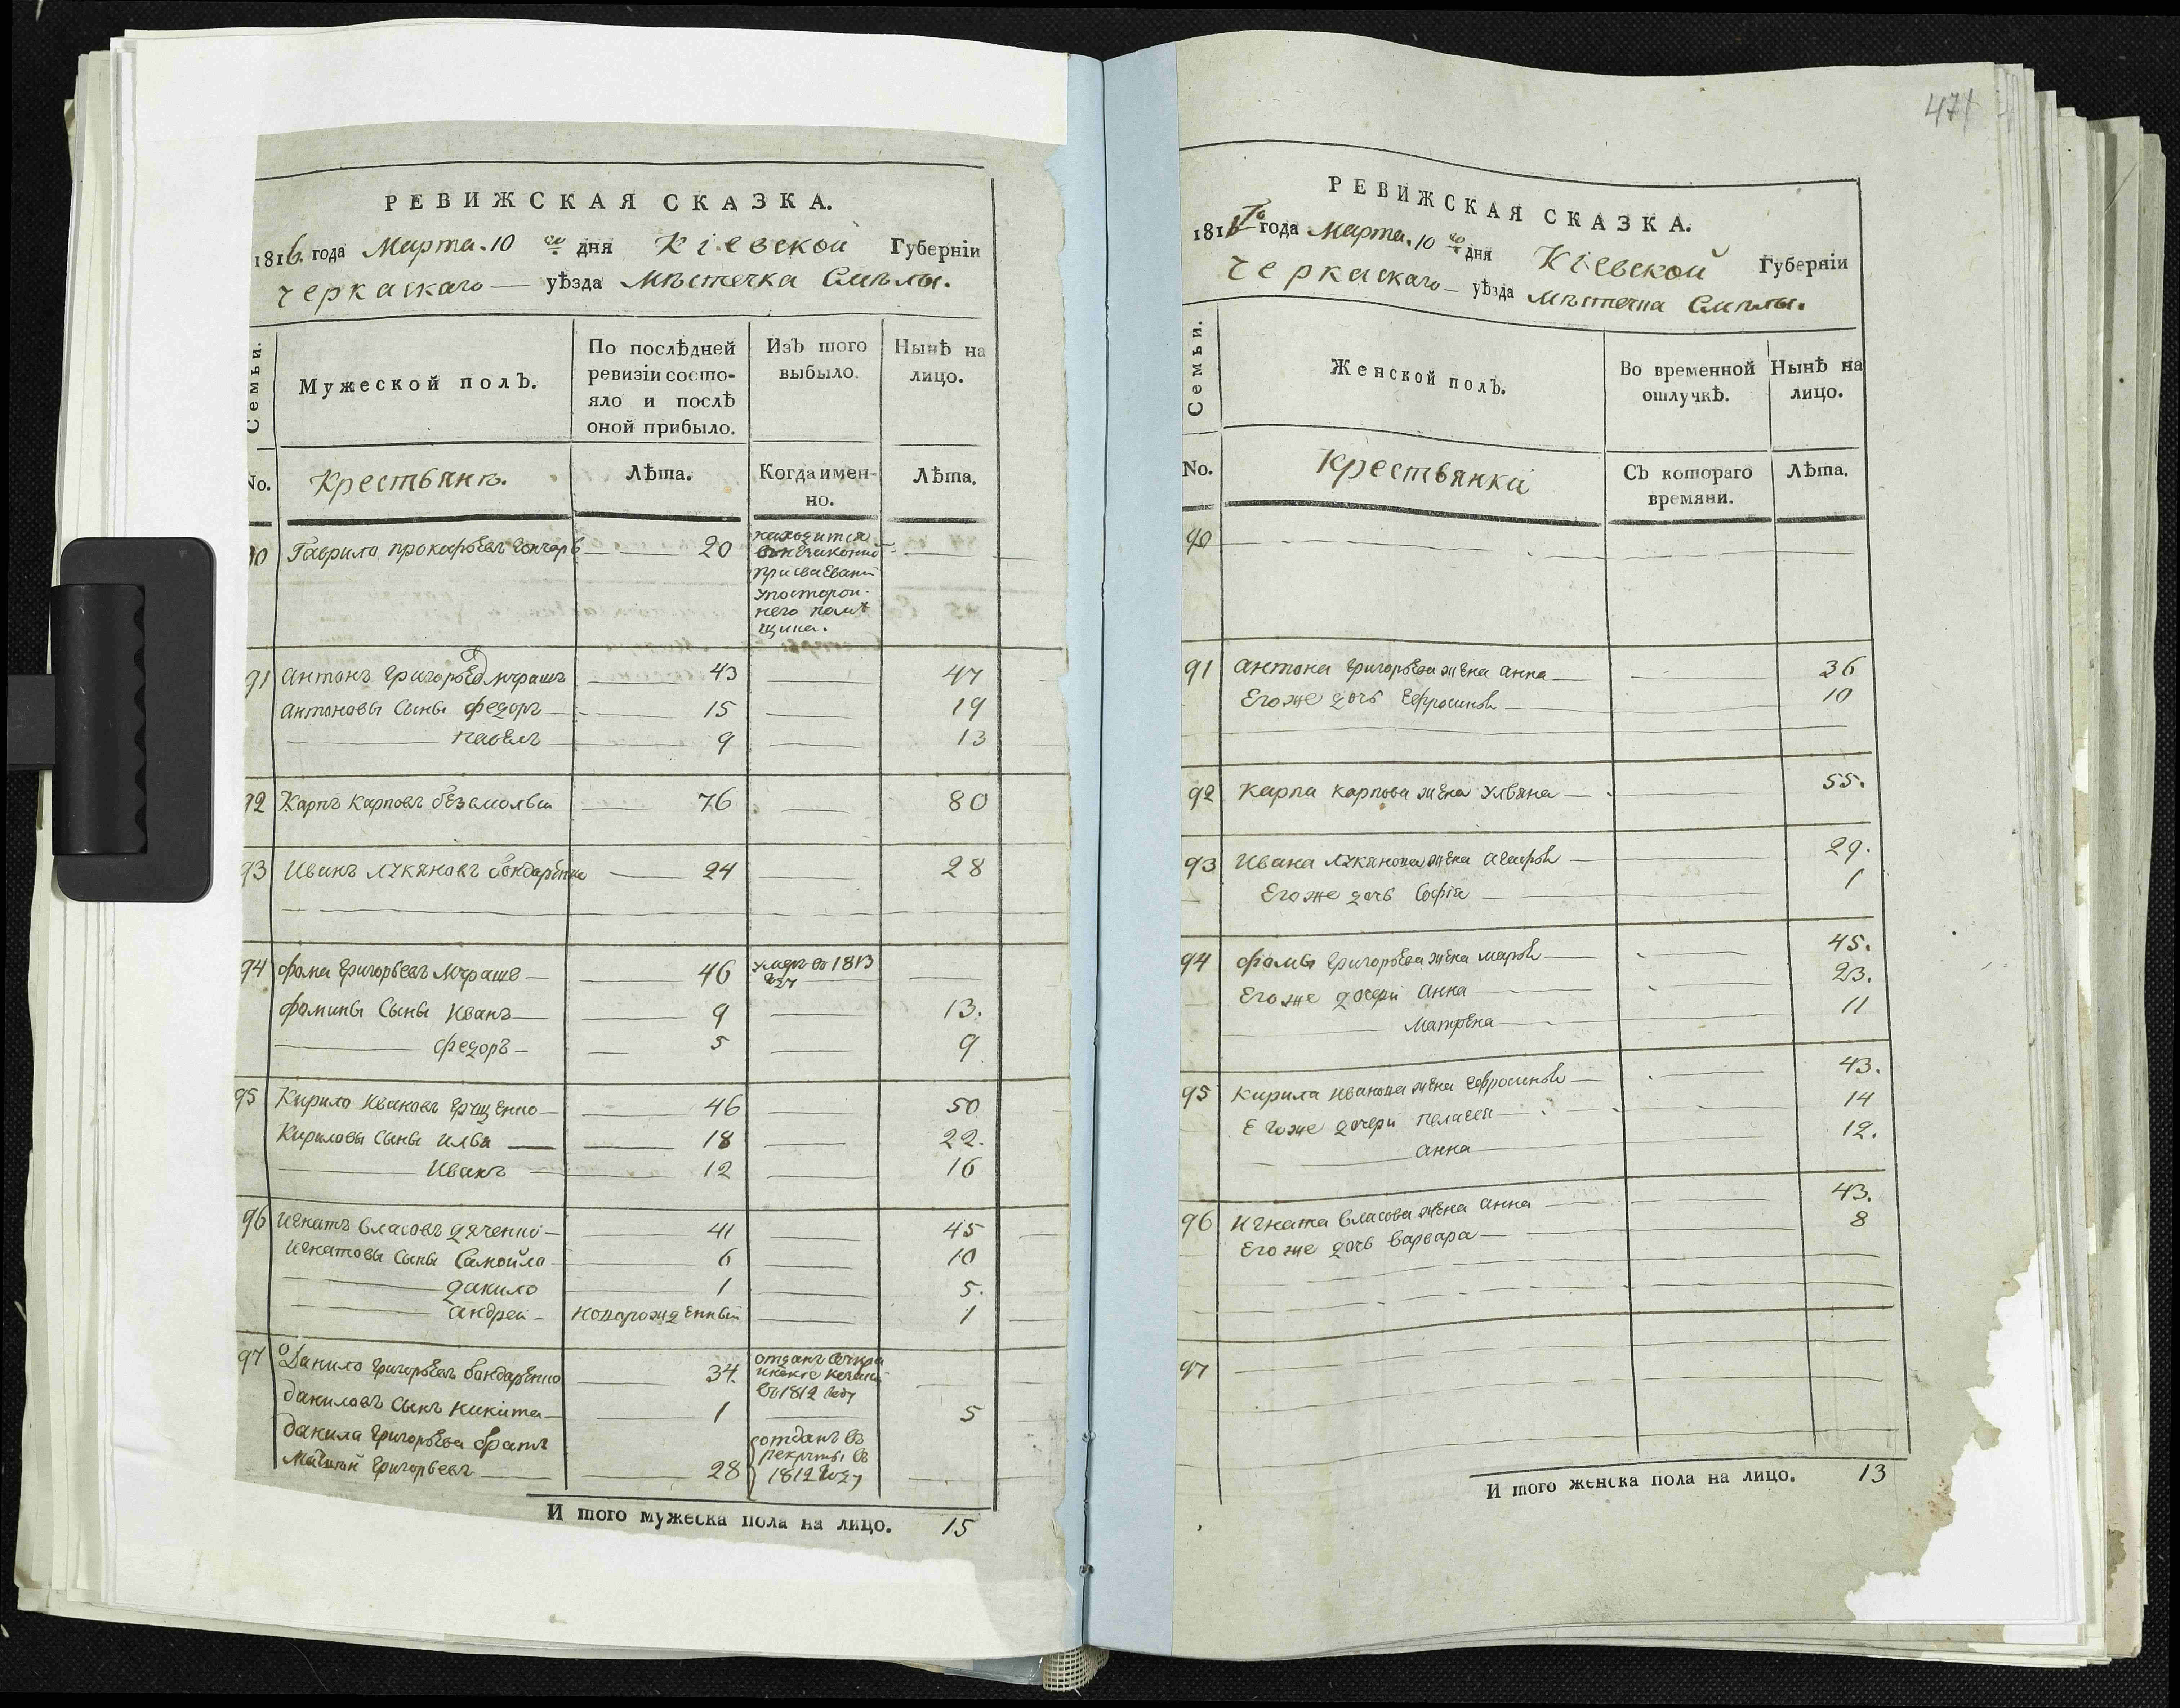 471
РЕВИЖСКАЯ СКАЗКА.
1816. года Марта. 10 го дня Кіевской Губерніи
Черкаскаго — уѣзда Мѣстечка Смѣлы.
Семьи.
Мужеской полъ.
По послѣдней ревизіи состо-
яло и послѣ
оной прибыло.
Изъ того
выбыло.
Нынѣ на
лицо.
No.
Крестьянъ.
Лѣта.
Когда имен-
но.
Лѣта.
90 Гаврило Прокофьевъ Гончаръ 20
находится
присваевани
у посторон-
него помѣ
щика.
91 Антонъ Григорьевъ 43 47
Антоновы Сыны Федоръ 15 19
Павелъ 9 13
92 Карпъ Карповъ 76 80
93 Иванъ Лукяновъ Бондаренко 24 28
94 Фома Григорьевъ 46 умеръ въ 1813
году
Фомины Сыны Иванъ 9 13.
Федоръ 5 9
95 Кирило Ивановъ Грищенко 46 50
Кириловы Сыны Илья 18 22.
Иванъ 12 16
96 Игнатъ Власовъ Дяченко 41 45
Игнатовы Сыны Самойло 6 10
Данило 1 5.
Андрей новорожденный 1
97 Данило Григорьевъ Бондаренко 34
отданъ
въ 1812 году
Даниловъ Сынъ Никита 1 5
Данила Григорьева братъ
Григорьевъ 28
отданъ въ
рекруты въ
1812 году
И того мужеска пола на лицо. 15
РЕВИЖСКАЯ СКАЗКА.
1816 го года Марта. 10 го дня Кіевской Губерніи
Черкаскаго — уѣзда Мѣстечка Смѣлы.
Семьи.
Женской полъ.
Во временной
отлучкѣ.
Нынѣ на
лицо.
No.
Крестьянки
Съ котораго
времяни.
Лѣта.
90
91 Антона Григорьева жена Анна 36
Его же дочь Ефросинья 10
92 Карпа Карпова жена Ульяна 55.
93 Ивана Лукянова жена Агафья 29.
Его же дочь Софія 1
94 Фомы Григорьева жена Марья 45.
Его же дочери Анна 23.
Матрена 11
95 Кирила Иванова жена Ефросинья 43.
Его же дочери Пелагея 14
Анна 12.
96 Игната Власова жена Анна 43.
Его же дочь Варвара 8
97
И того женска пола на лицо. 13